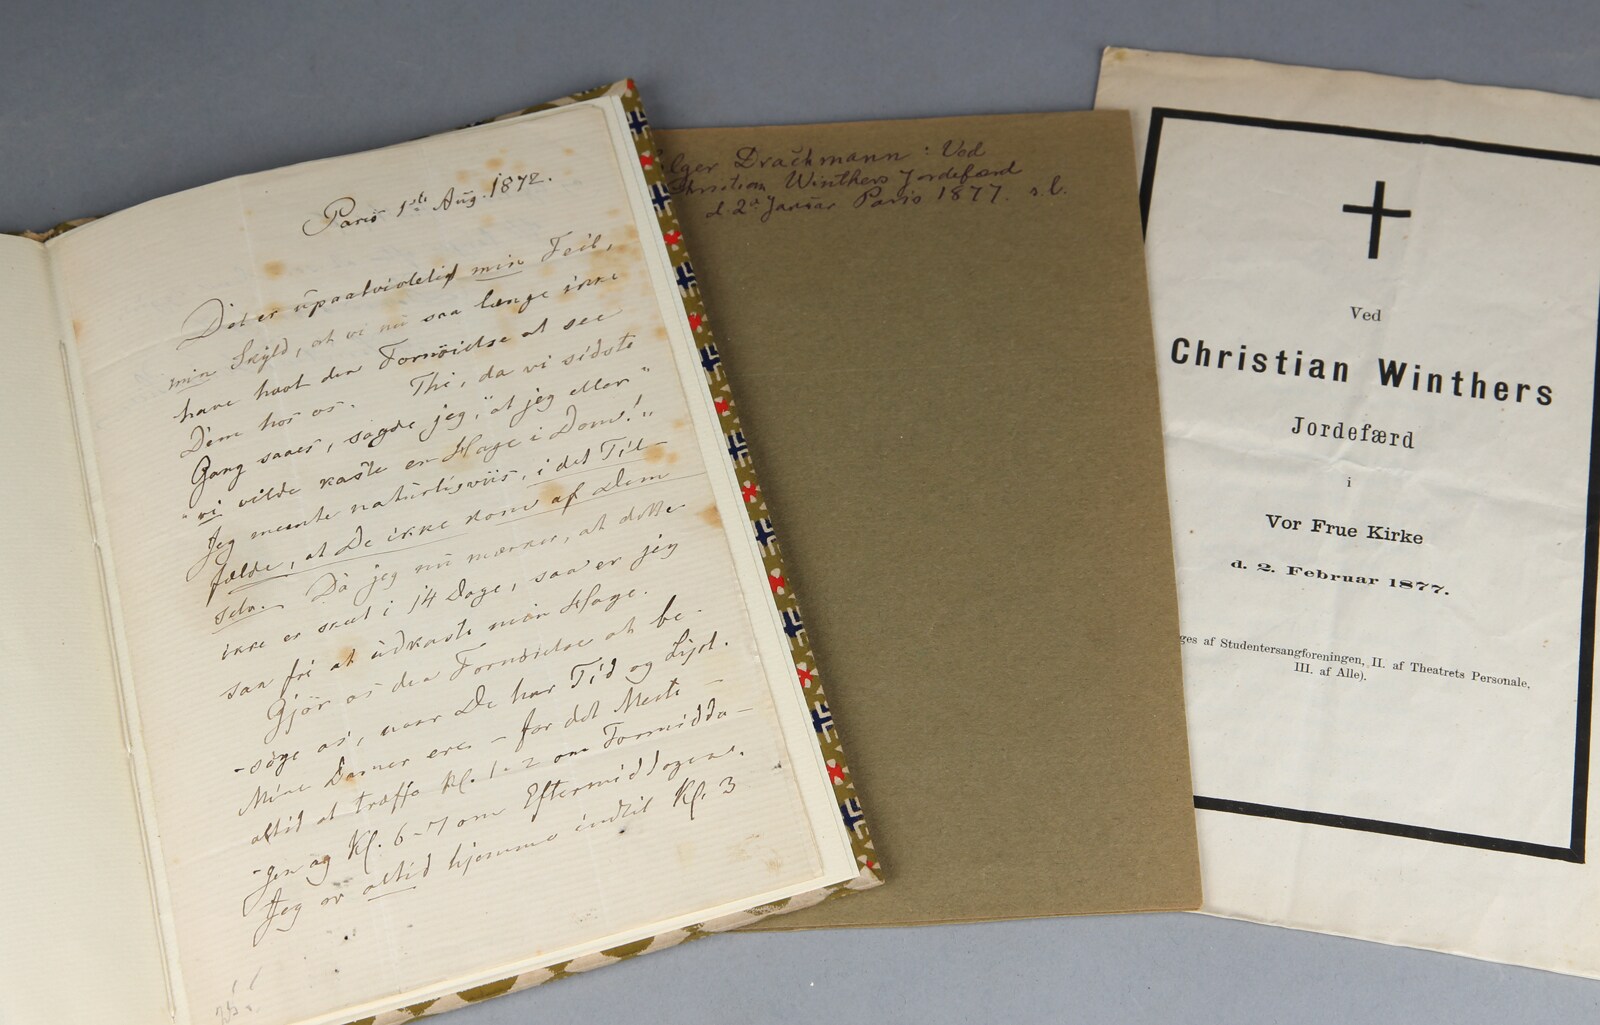 Paris 1ste Aug. 1872.
Det er upaatvivlelig min Feil,
min Skyld, at vi nu saa længe ikke
have havt den Fornöielse at see
Dem hos os. Thi, da vi sidste
Gang saaes, sagde jeg, "at jeg eller"
"vi vilde kaste en Hage i Dem!"
Jeg meente naturligviis, i det Til-
fælde, at De ikke kom af Dem
selv. Da jeg nu mærker, at dette
ikke er skeet i 14 Dage, saa er jeg
saa fri at udkaste min Hage.
Gjör os den Fornöielse at be-
-söge os, naar De har Tid og Lyst.
Mine Damer ere - for det Meste -
altid at træffe Kl. 1-2 om Formidda-
-gen og Kl. 6-7 om Eftermiddagene.
Jeg er altid hjemme indtil Kl. 3
Drachmann: Ved
Christian Winthers Jordefærd
d. 2d Januar Paris 1877. s.l.
Ved
Christian Winthers
Jordefærd
i
Vor Frue Kirke
d. 2. Februar 1877.
af Studentersangforeningen, II. af Theatrets Personale,
III. af Alle).